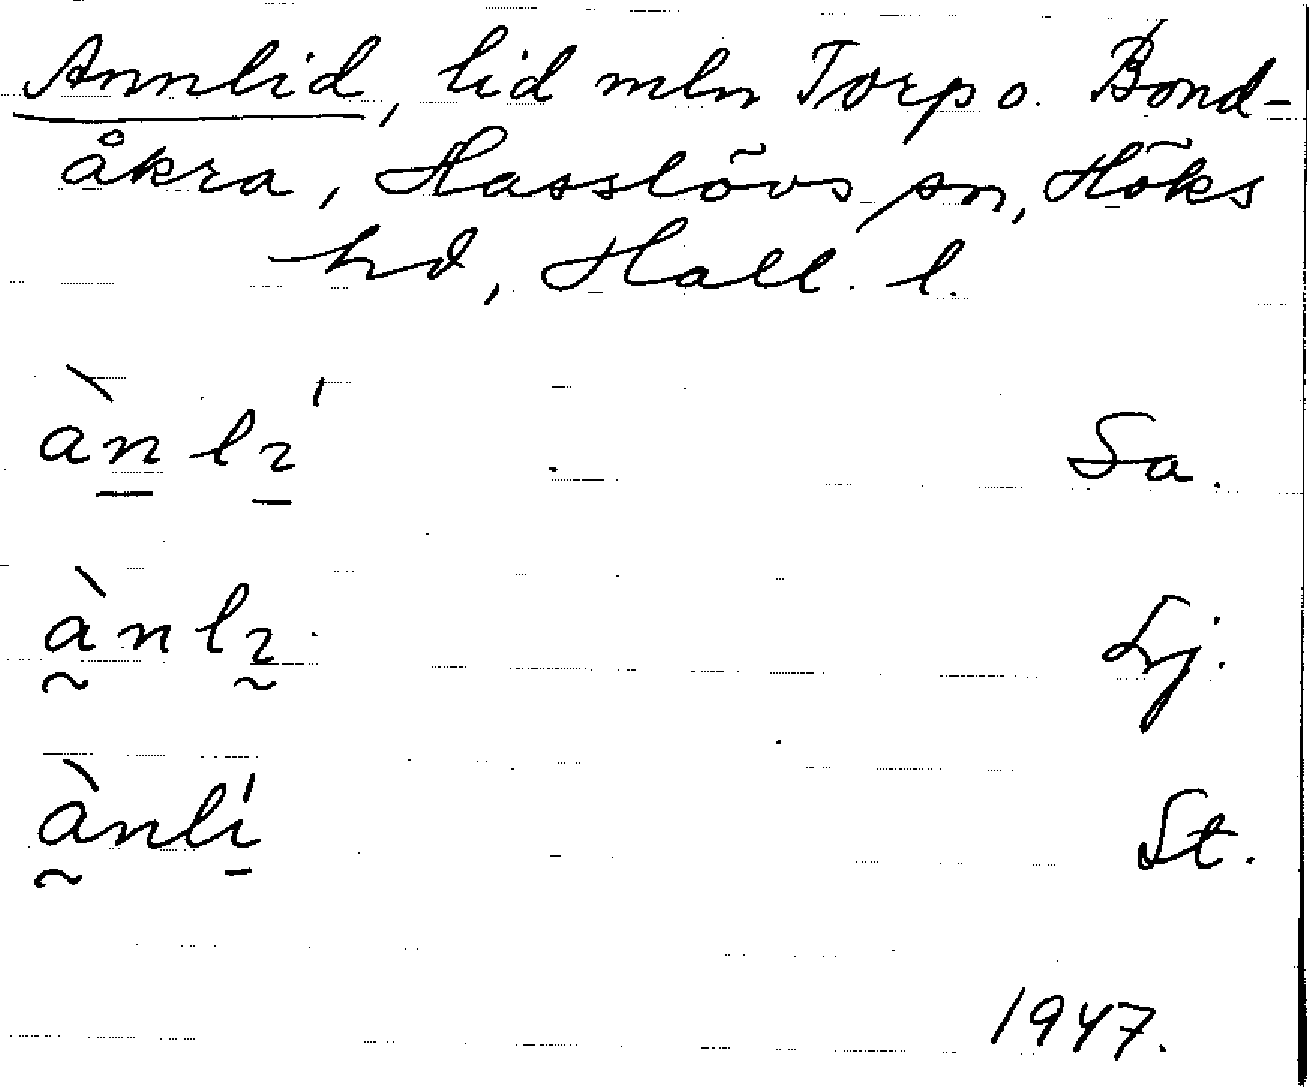 Annlid, lid mln Torp o. Bond-
åkra, Hasslövs sn, Höks
hd, Hall. l.
ànlɪ́ Sa.
ànlɪ Lj.
ànlí St.
1947.